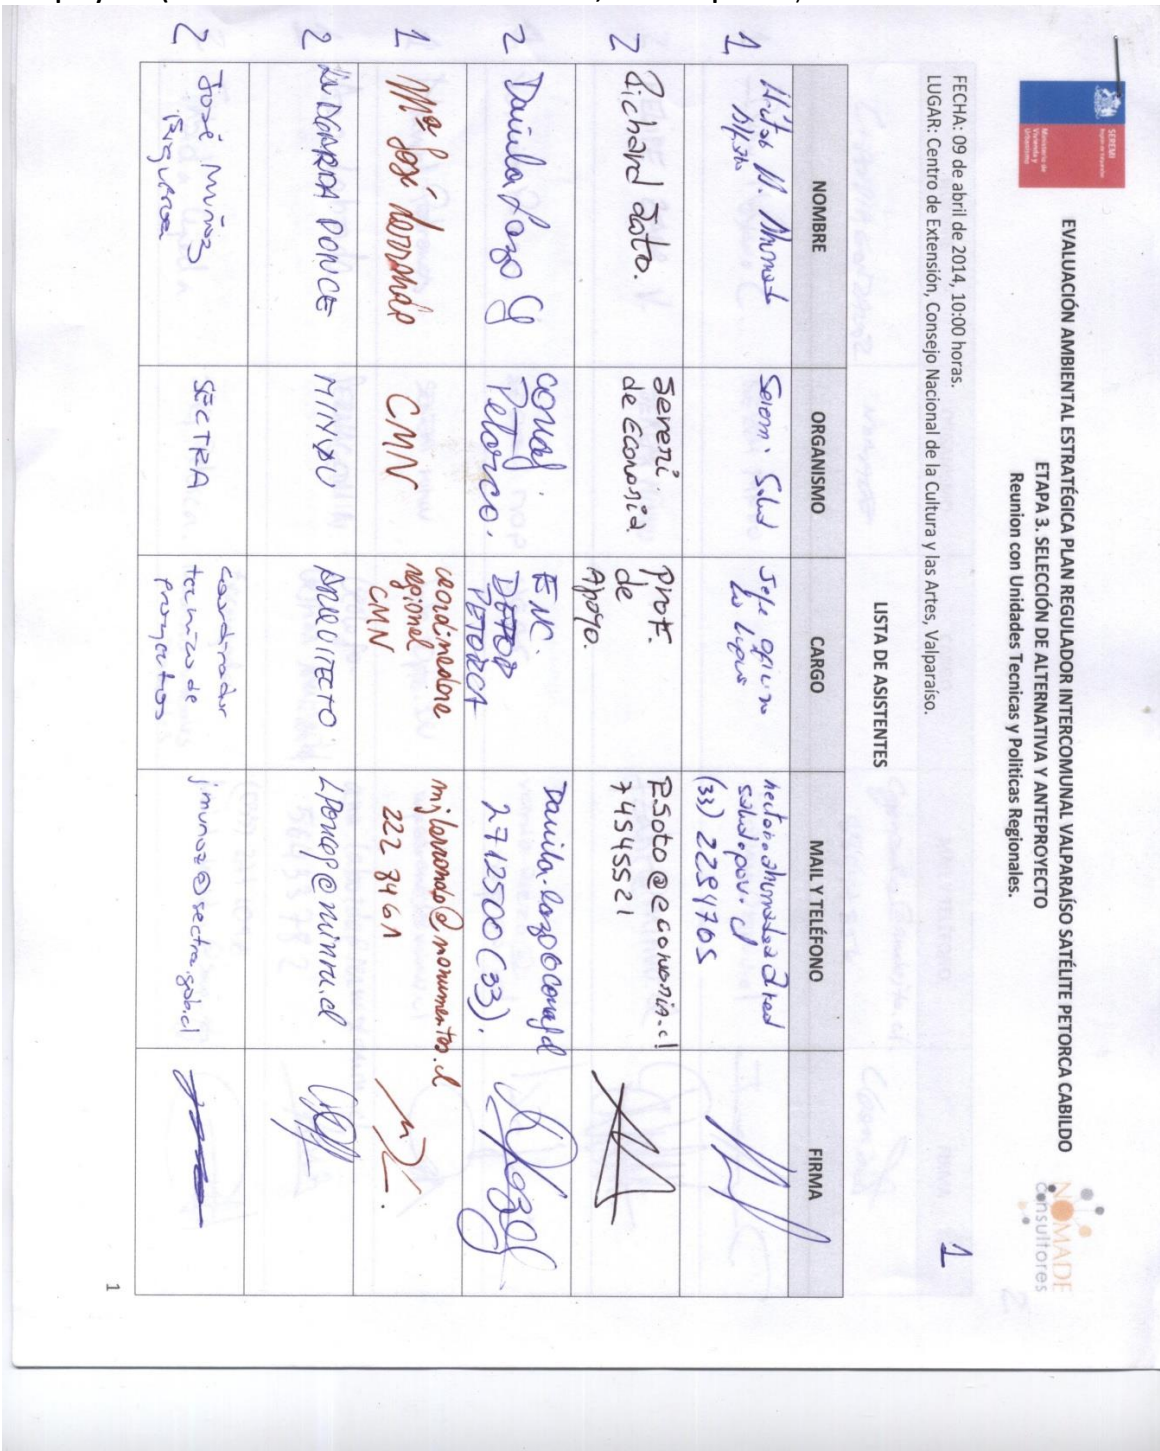 SEREMI
Ministerio de
Vivienda y
Urbanismo
EVALUACIÓN AMBIENTAL ESTRATÉGICA PLAN REGULADOR INTERCOMUNAL VALPARAÍSO SATÉLITE PETORCA CABILDO
ETAPA 3. SELECCIÓN DE ALTERNATIVA Y ANTEPROYECTO
Reunion con Unidades Tecnicas y Politicas Regionales.
NOMADE
consultores
1
FECHA: 09 de abril de 2014, 10:00 horas.
LUGAR: Centro de Extensión, Consejo Nacional de la Cultura y las Artes, Valparaíso.
LISTA DE ASISTENTES
NOMBRE ORGANISMO CARGO MAIL Y TELÉFONO FIRMA
1
Seremi Salud
Jefe oficina
(33) 2294705
2 Richard Soto.
Seremi.
de Economia
Prof.
de
Apoyo.
RSoto@economia.cl
74545521
2 Daniela Lazo G
Conaf.
Petorca.
ENC.
PETORCA
Daniela.lazo@conaf.cl
2712500 (33).
1 Mª José Larrondo
CMN
coordinadora
regional
CMN
mjlarrondo@monumentos.cl
222 8461
2 PONCE
MINVU
ARQUITECTO
Lponcep@minvu.cl
2 José Muñoz
Figueroa
SECTRA
coordinador
tecnico de
proyectos
jmunoz@sectra.gob.cl
1